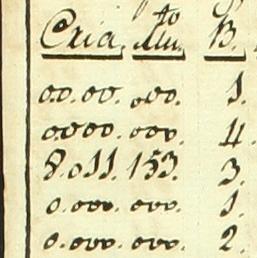 Cria. Mu.to B.
00.00. 000. 1.
0000. 000. 4.
8.011. 153. 3.
0.000. 000. 1.
0.000. 000. 2.